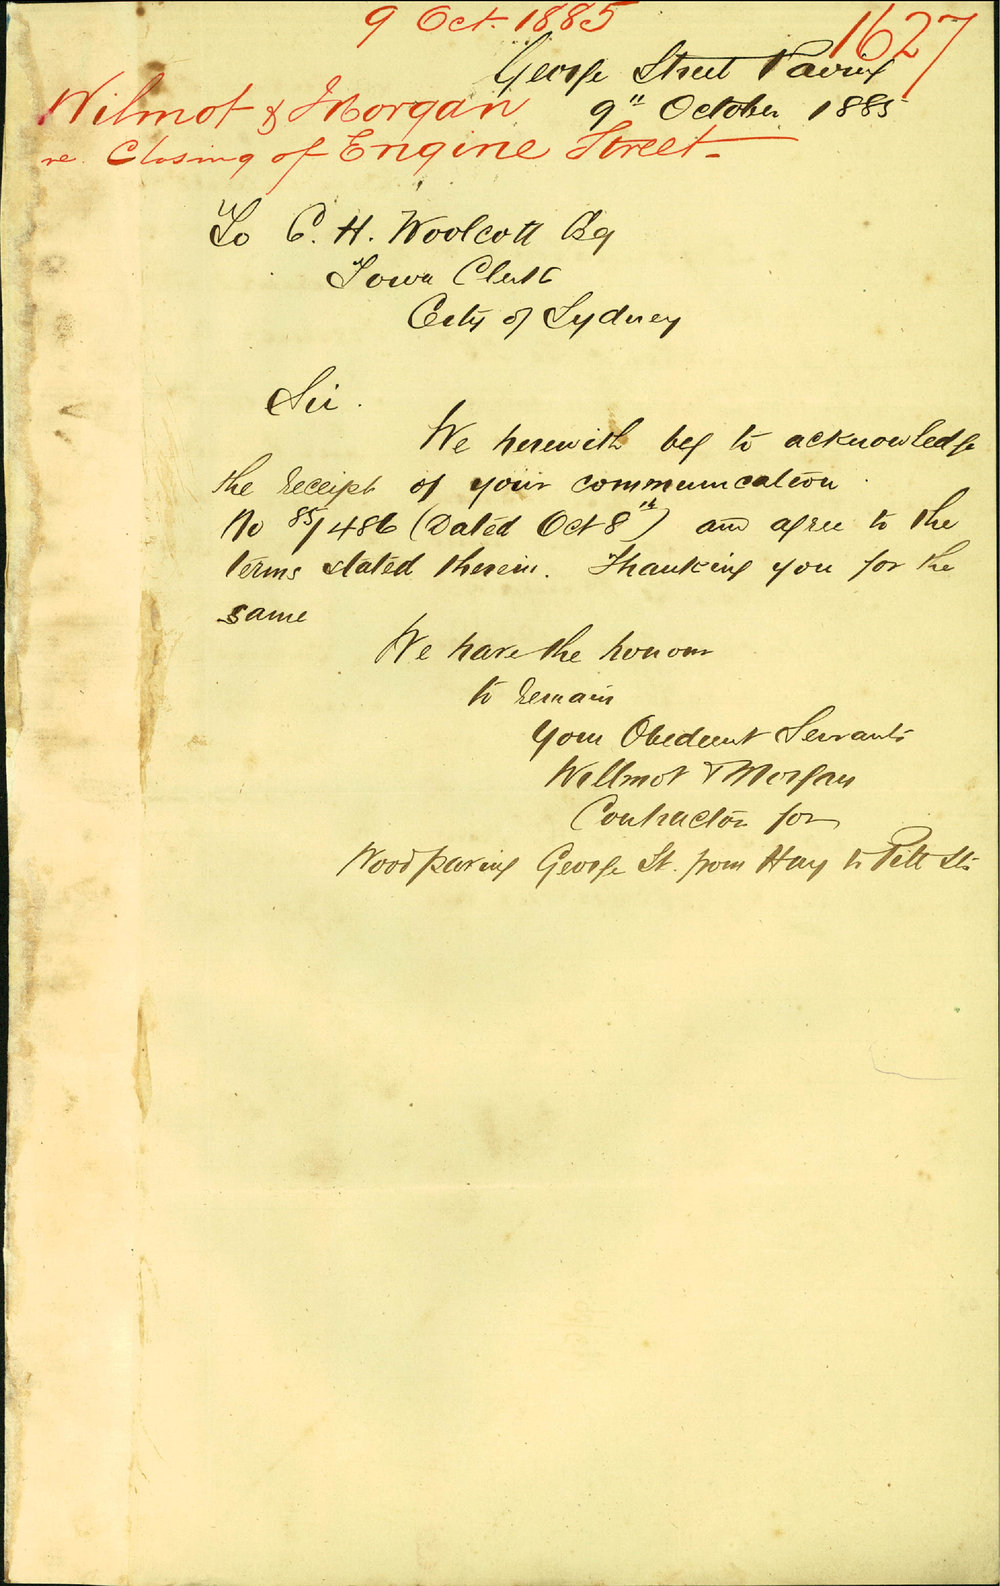 9 Oct. 1885
1627
George Street Paving
Wilmot & Morgan
9th October 1885
re Closing of Engine Street.
To C. H. Woolcott Esq
Town Clerk
City of Sydney
Sir.
We herewith beg to acknowledge
the receipt of your communication
No 85/486 (Dated Oct 8th) and agree to the
terms stated therein. Thanking you for the
same
We have the honour
to remain
your Obedient Servants
Willmot & Morgan
Contractors for
Woodpaving George St. from Hay to Pitt Sts